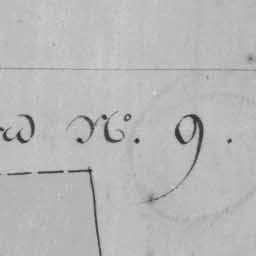 rd Nº. 9.